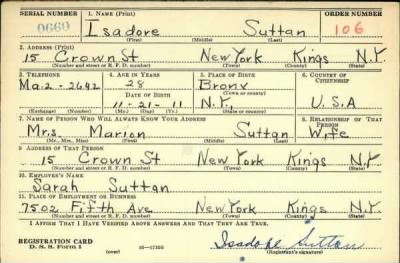 SERIAL NUMBER 1. NAME (Print) ORDER NUMBER
0660 Isadore Suttan 106
(First) (Middle) (Last)
2. ADDRESS (Print)
15 Crown St New York Kings N.Y.
(Number and street or R. F. D. number) (Town) (County) (State)
3. TELEPHONE 4. AGE IN YEARS 5. PLACE OF BIRTH 6. COUNTRY OF CITIZENSHIP
Ma.2-2692 28 Bronx
DATE OF BIRTH (Town or county)
11-21-11 N.Y. U.S.A
(Exchange) (Number) (Mo.) (Day) (Yr.) (State or country)
7. NAME OF PERSON WHO WILL ALWAYS KNOW YOUR ADDRESS 8. RELATIONSHIP OF THAT PERSON
Mrs. Marion Suttan Wife
(Mr., Mrs., Miss) (First) (Middle) (Last)
9. ADDRESS OF THAT PERSON
15 Crown St New York Kings N.Y.
(Number and street or R. F. D. number) (Town) (County) (State)
10. EMPLOYER'S NAME
Sarah Suttan
11. PLACE OF EMPLOYMENT OR BUSINESS
7502 Fifth Ave New York Kings N.Y.
(Number and street or R. F. D. number) (Town) (County) (State)
I AFFIRM THAT I HAVE VERIFIED ABOVE ANSWERS AND THAT THEY ARE TRUE.
REGISTRATION CARD
D. S. S. Form 1 16—17105 Isadore Suttan
(Registrant's signature)